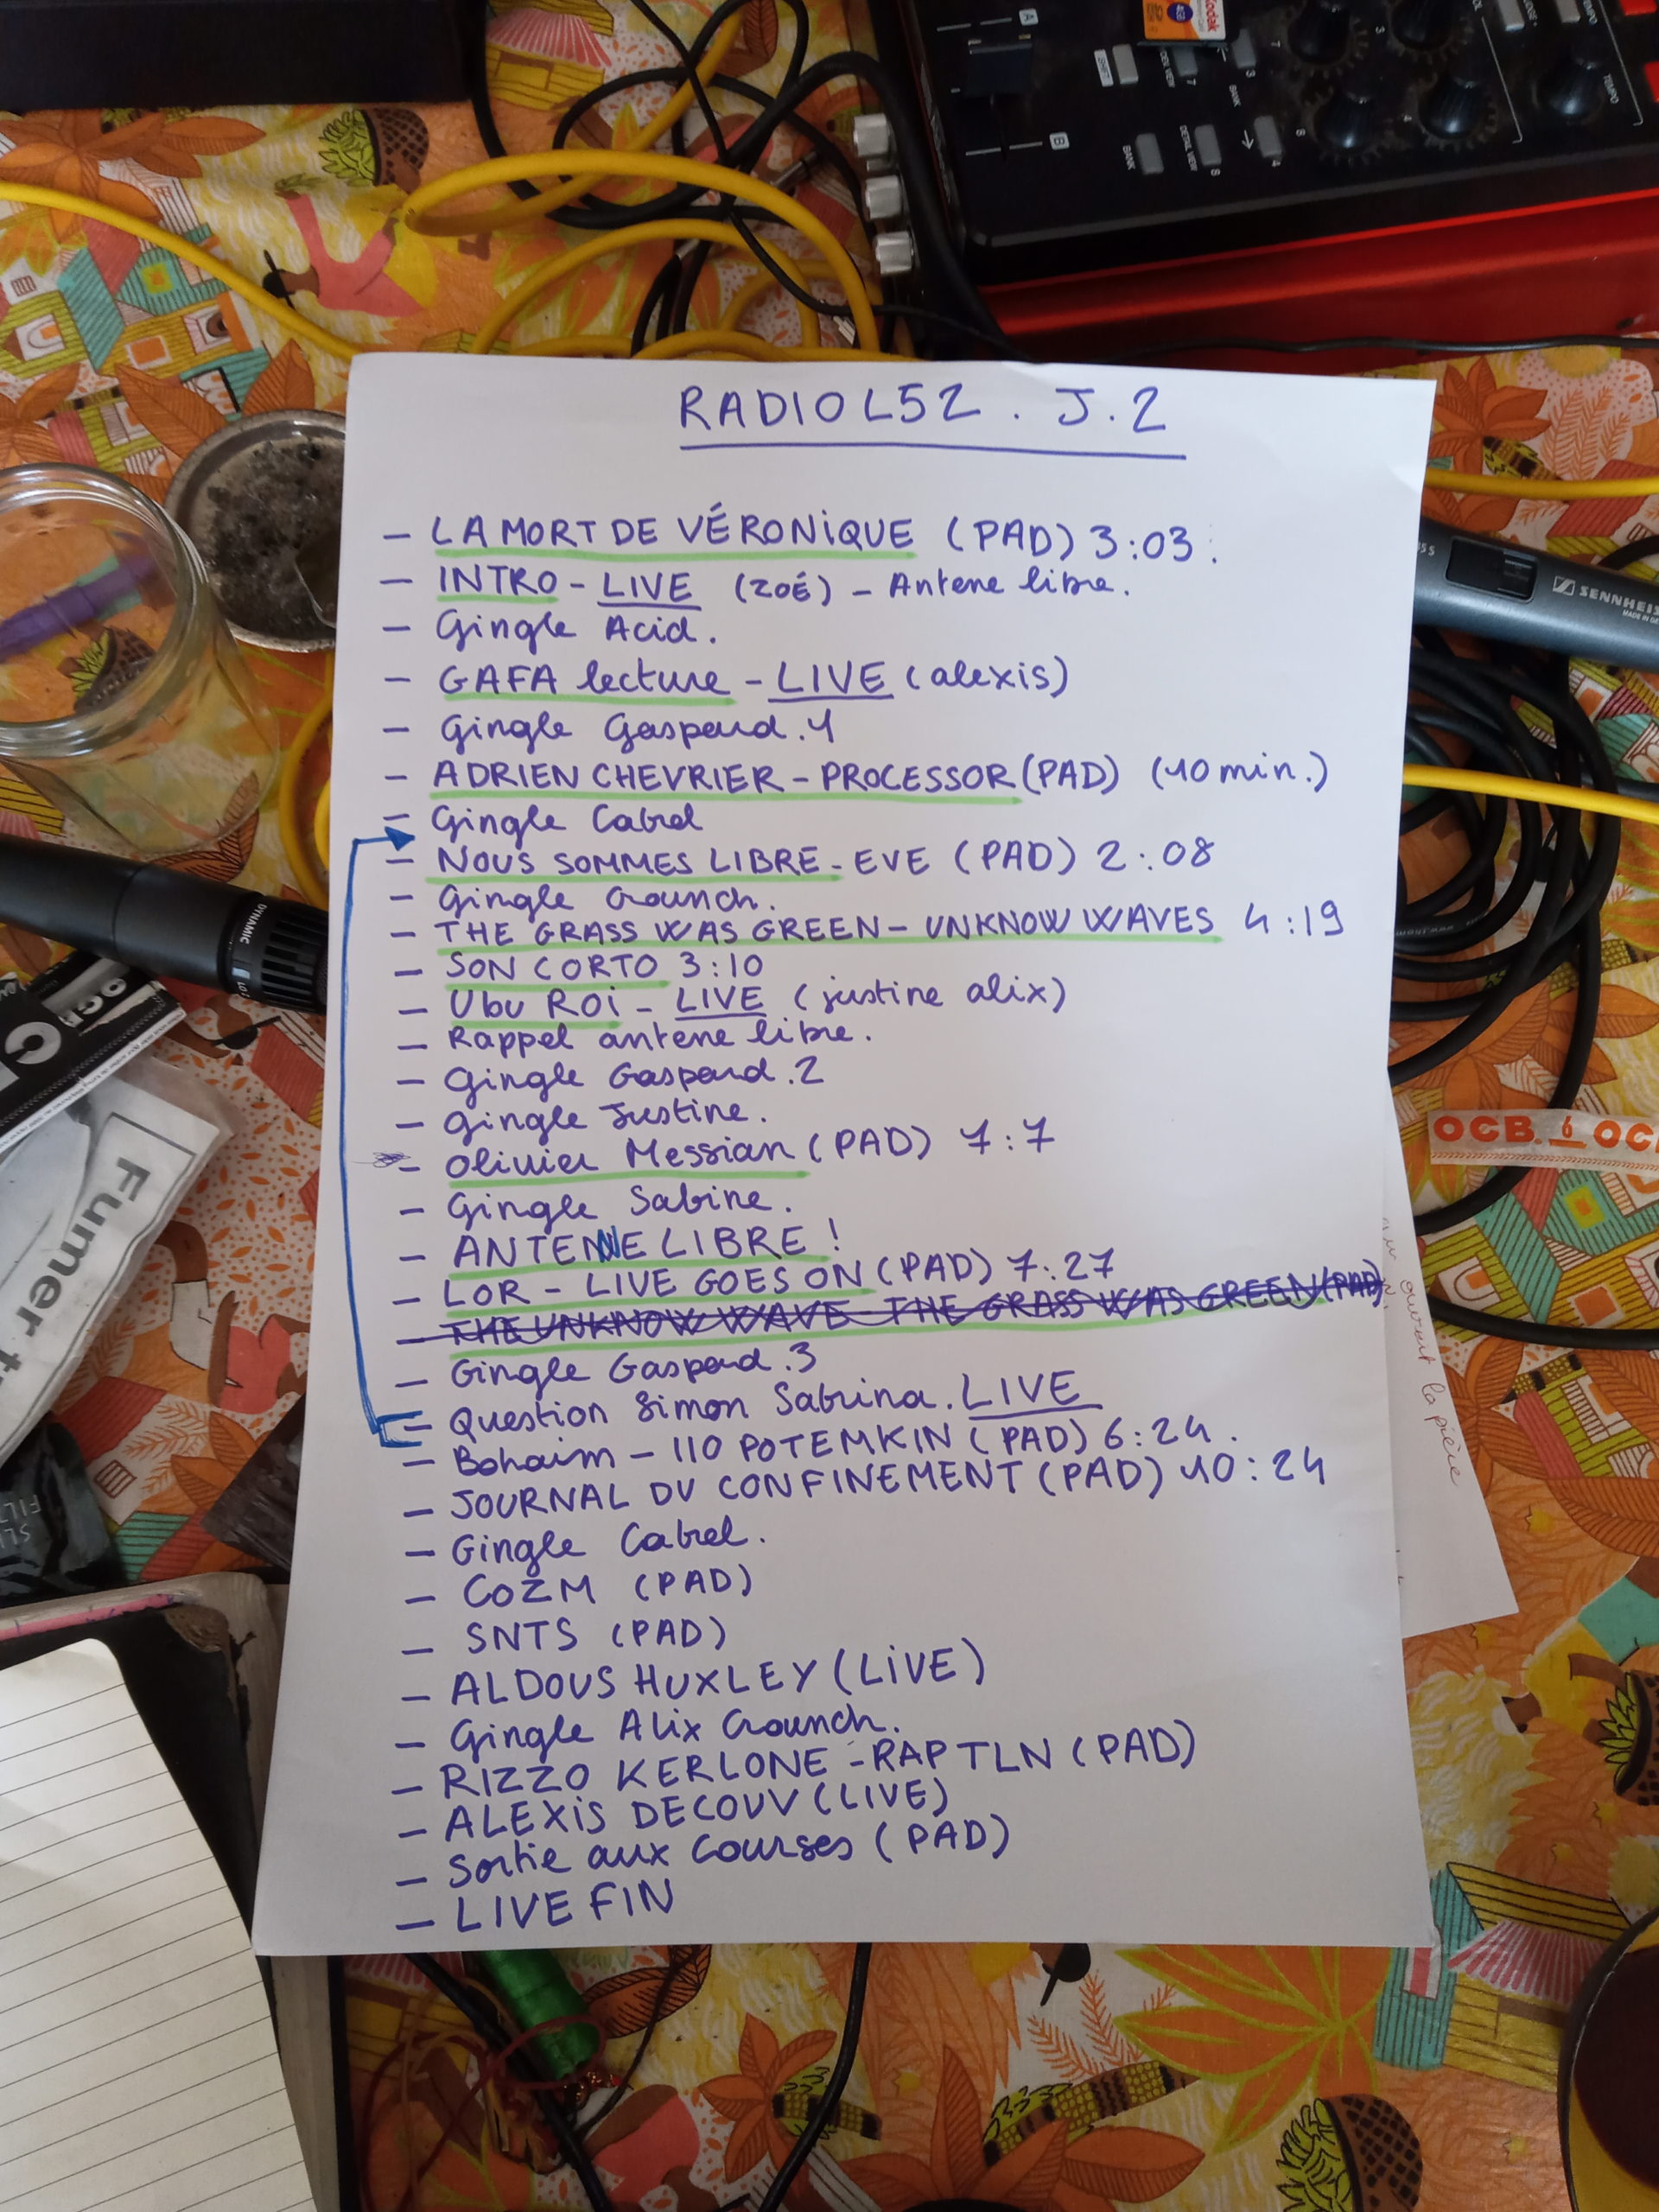 Kodak
4GB
A
B
SHIFT
BANK
BANK
DETAIL VIEW
TEMPO
7
8
3
4
RADIO L52 . J.2
– LA MORT DE VÉRONIQUE (PAD) 3:03.
– INTRO – LIVE (ZOÉ) – Antene libre.
– Gingle Acid.
– GAFA lecture – LIVE (alexis)
– Gingle Gaspard.1
– ADRIEN CHEVRIER – PROCESSOR (PAD) (10 min.)
– Gingle Cabrel
– NOUS SOMMES LIBRE – EVE (PAD) 2:08
– Gingle Crounch.
– THE GRASS WAS GREEN – UNKNOW WAVES 4:19
– SON CORTO 3:10
– Ubu Roi – LIVE (justine alix)
– Rappel antene libre.
– Gingle Gaspard.2
– Gingle Justine.
– Olivier Messian (PAD) 7:7
– Gingle Sabine.
– ANTENNE LIBRE !
– LOR – LIVE GOES ON (PAD) 7:27
– THE UNKNOW WAVE – THE GRASS WAS GREEN (PAD)
– Gingle Gaspard.3
– Question Simon Sabrina. LIVE
– Bohaim – 110 POTEMKIN (PAD) 6:24.
– JOURNAL DU CONFINEMENT (PAD) 10:24
– Gingle Cabrel.
– COZM (PAD)
– SNTS (PAD)
– ALDOUS HUXLEY (LIVE)
– Gingle Alix Crounch.
– RIZZO KERLONE – RAP TLN (PAD)
– ALEXIS DECOUV (LIVE)
– Sortie aux Courses (PAD)
– LIVE FIN
SENNHEIS
MADE IN GE
DYNAMIC
OCB
Fumer t
OCB 6 OC
ouvrent la pièce